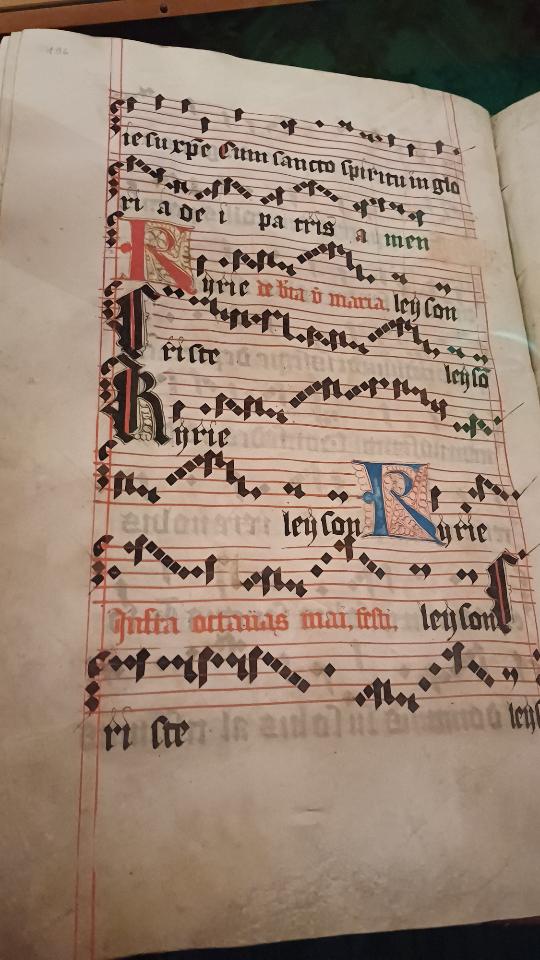 iesu xp̄e Cum sancto spiritu in glo
ri a de i pa tris a men
Kyrie de bt̄a v̄ maria. leyson
Criste leysō
Kyrie
leyson Kyrie
Infra octauas mai. festi. leyson C
ri ste leys